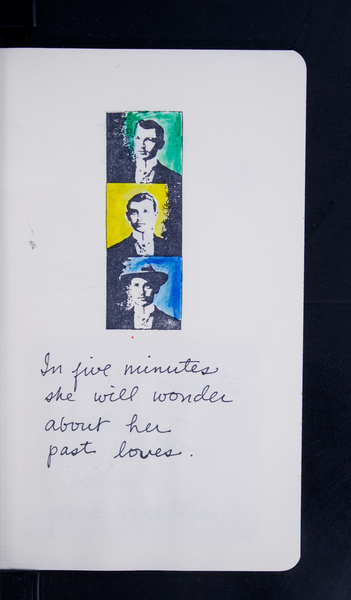 In five minutes
she will wonder
about her
past loves.